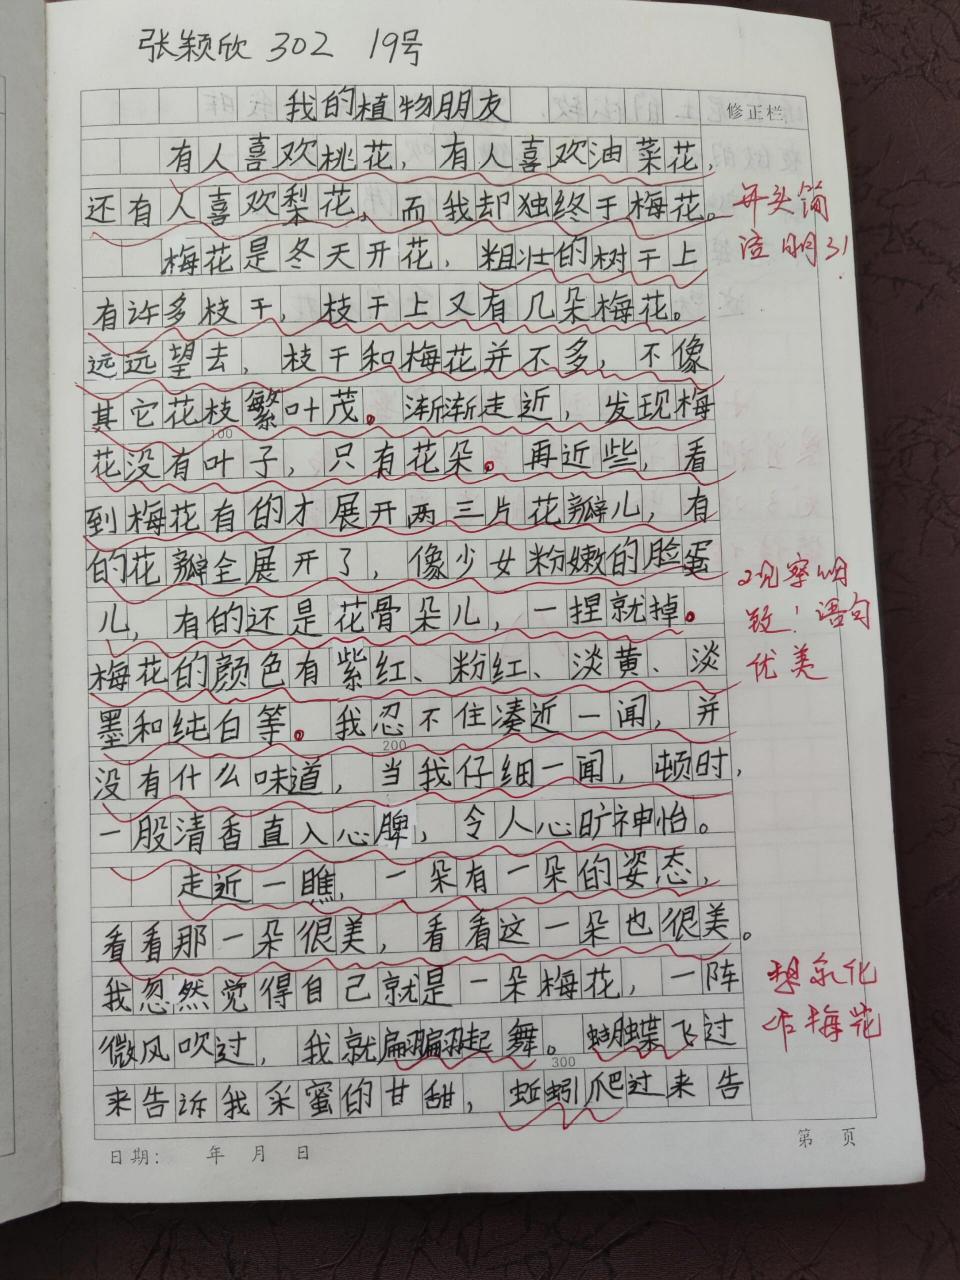 张颖欣 302 19号
我的植物朋友
修正栏
有人喜欢桃花，有人喜欢油菜花，
还有人喜欢梨花，而我却独终于梅花。
开头简
洁明了！
梅花是冬天开花，粗壮的树干上
有许多枝干，枝干上又有几朵梅花。
远远望去，枝干和梅花并不多，不像
其它花枝繁叶茂。渐渐走近，发现梅
100
花没有叶子，只有花朵。再近些，看
到梅花有的才展开两三片花瓣儿，有
的花瓣全展开了，像少女粉嫩的脸蛋
儿，有的还是花骨朵儿，一捏就掉。
观察细
致！语句
优美
梅花的颜色有紫红、粉红、淡黄、淡
墨和纯白等。我忍不住凑近一闻，并
200
没有什么味道，当我仔细一闻，顿时，
一股清香直入心脾，令人心旷神怡。
走近一瞧，一朵有一朵的姿态，
看看那一朵很美，看看这一朵也很美。
我忽然觉得自己就是一朵梅花，一阵
想象化
作梅花
微风吹过，我就翩翩起舞。蝴蝶飞过
300
来告诉我采蜜的甘甜，蚯蚓爬过来告
日期： 年 月 日
第 页